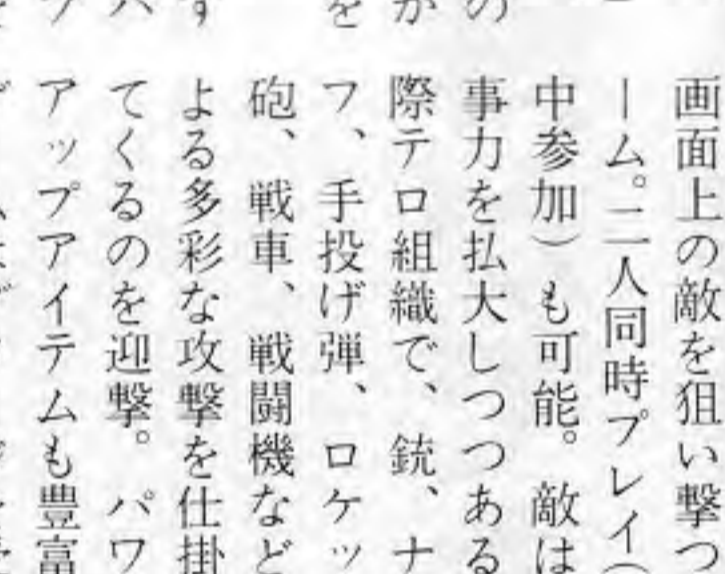 画面上の敵を狙い撃つ
ーム。二人同時プレイ（
中参加）も可能。敵は
事力を払大しつつある
際テロ組織で、銃、ナ
フ、手投げ弾、ロケッ
砲、戦車、戦闘機など
よる多彩な攻撃を仕掛
てくるのを迎撃。パワ
アップアイテムも豊富